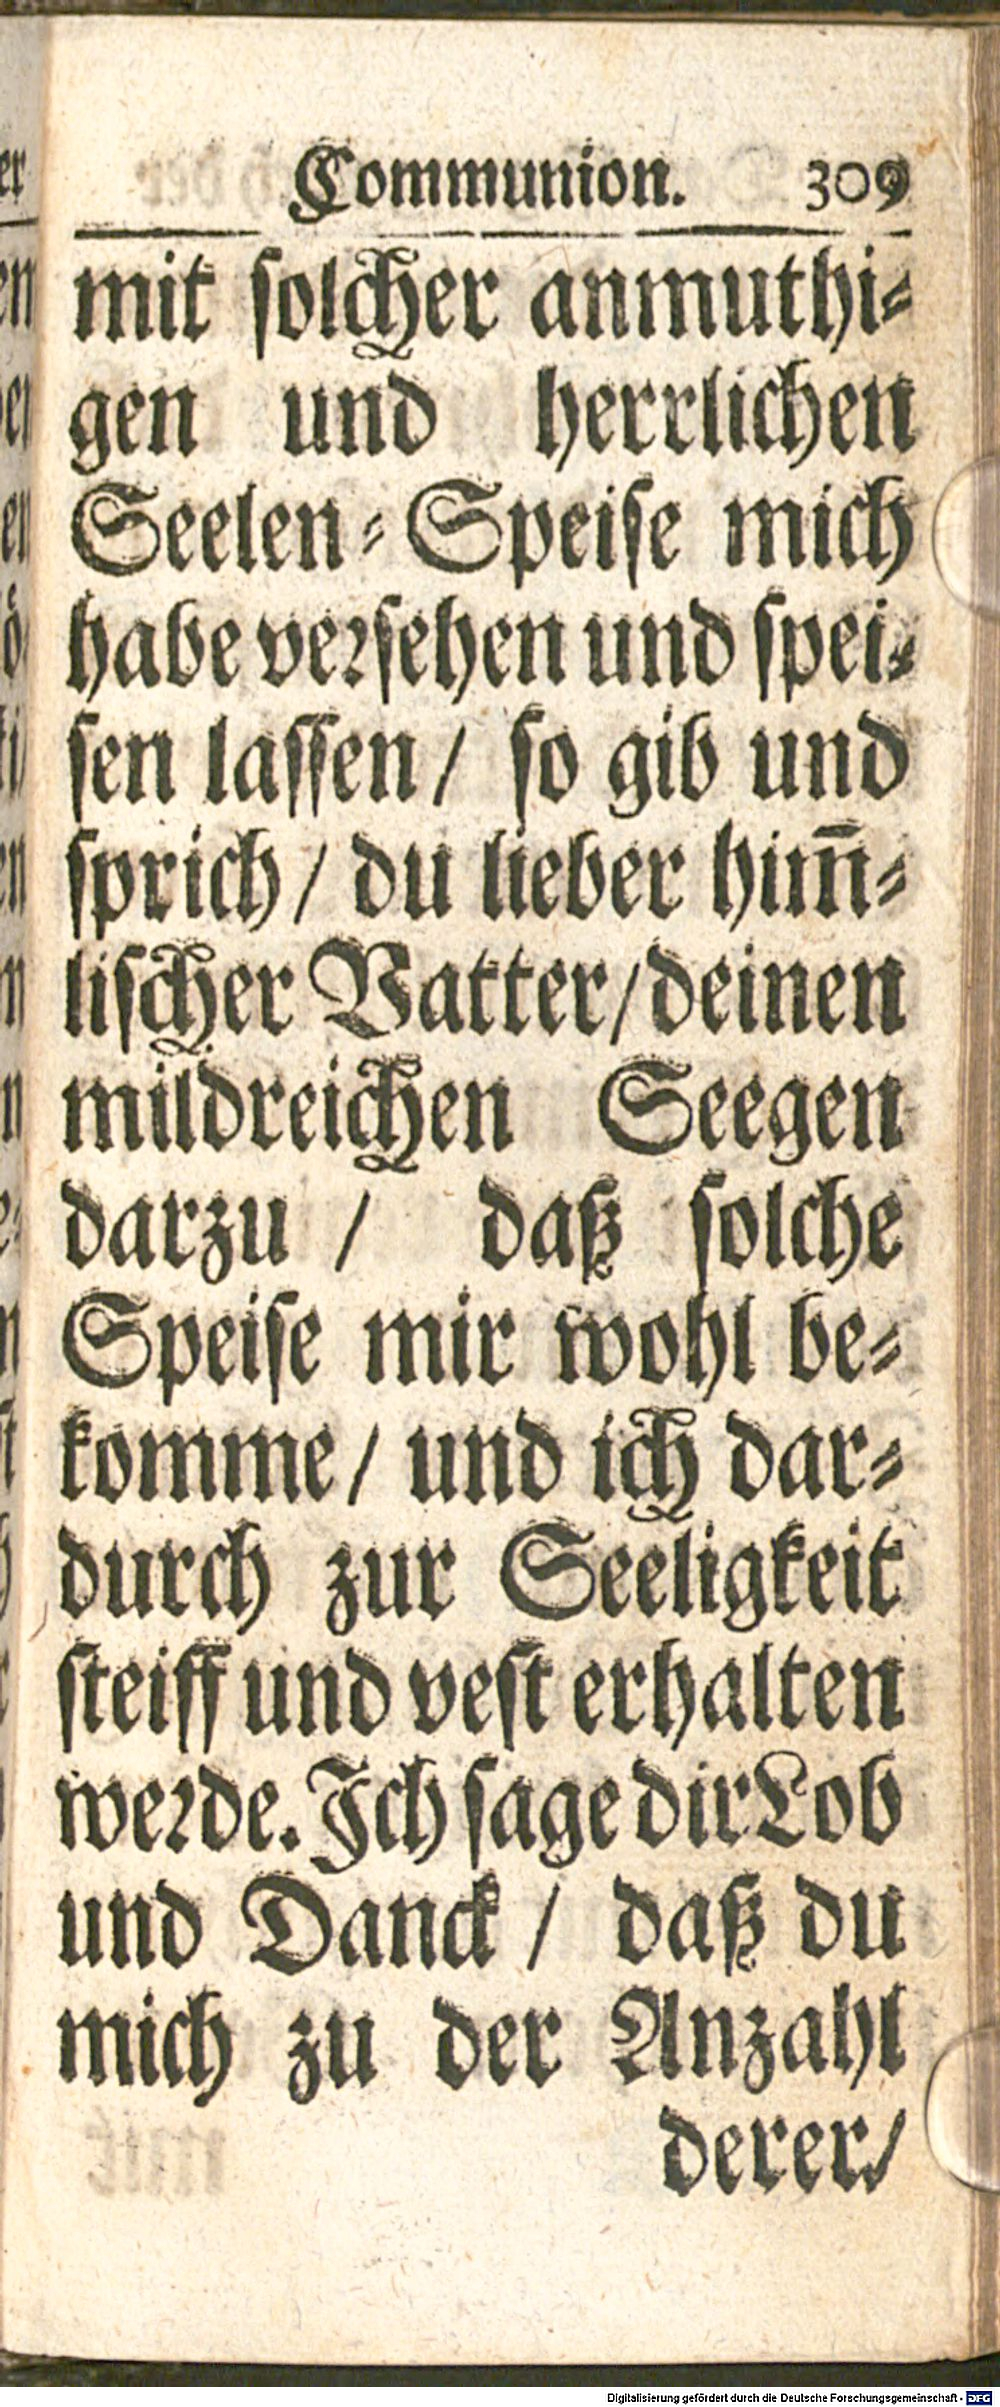 Communion. 309
mit ſolcher anmuthi⸗
gen und herrlichen
Seelen⸗Speiſe mich
habe verſehen und ſpei⸗
ſen laſſen/ ſo gib und
ſprich/ du lieber him̃⸗
liſcher Vatter/deinen
mildreichen Seegen
darzu / daß ſolche
Speiſe mir wohl be⸗
komme/ und ich dar⸗
durch zur Seeligkeit
ſteiff und veſt erhalten
werde. Ich ſage dir Lob
und Danck / daß du
mich zu der Anzahl
derer/
Digitalisierung gefördert durch die Deutsche Forschungsgemeinschaft - DFG